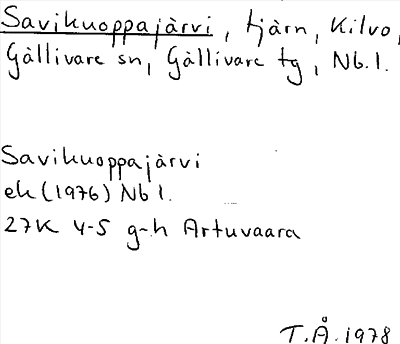 Savikuoppajärvi, tjärn, Kilvo,
Gällivare sn, Gällivare tg, Nb.l.
Savikuoppajärvi
ek (1976) Nb l.
27K 4-5 g-h Artuvaara
T.Å. 1978